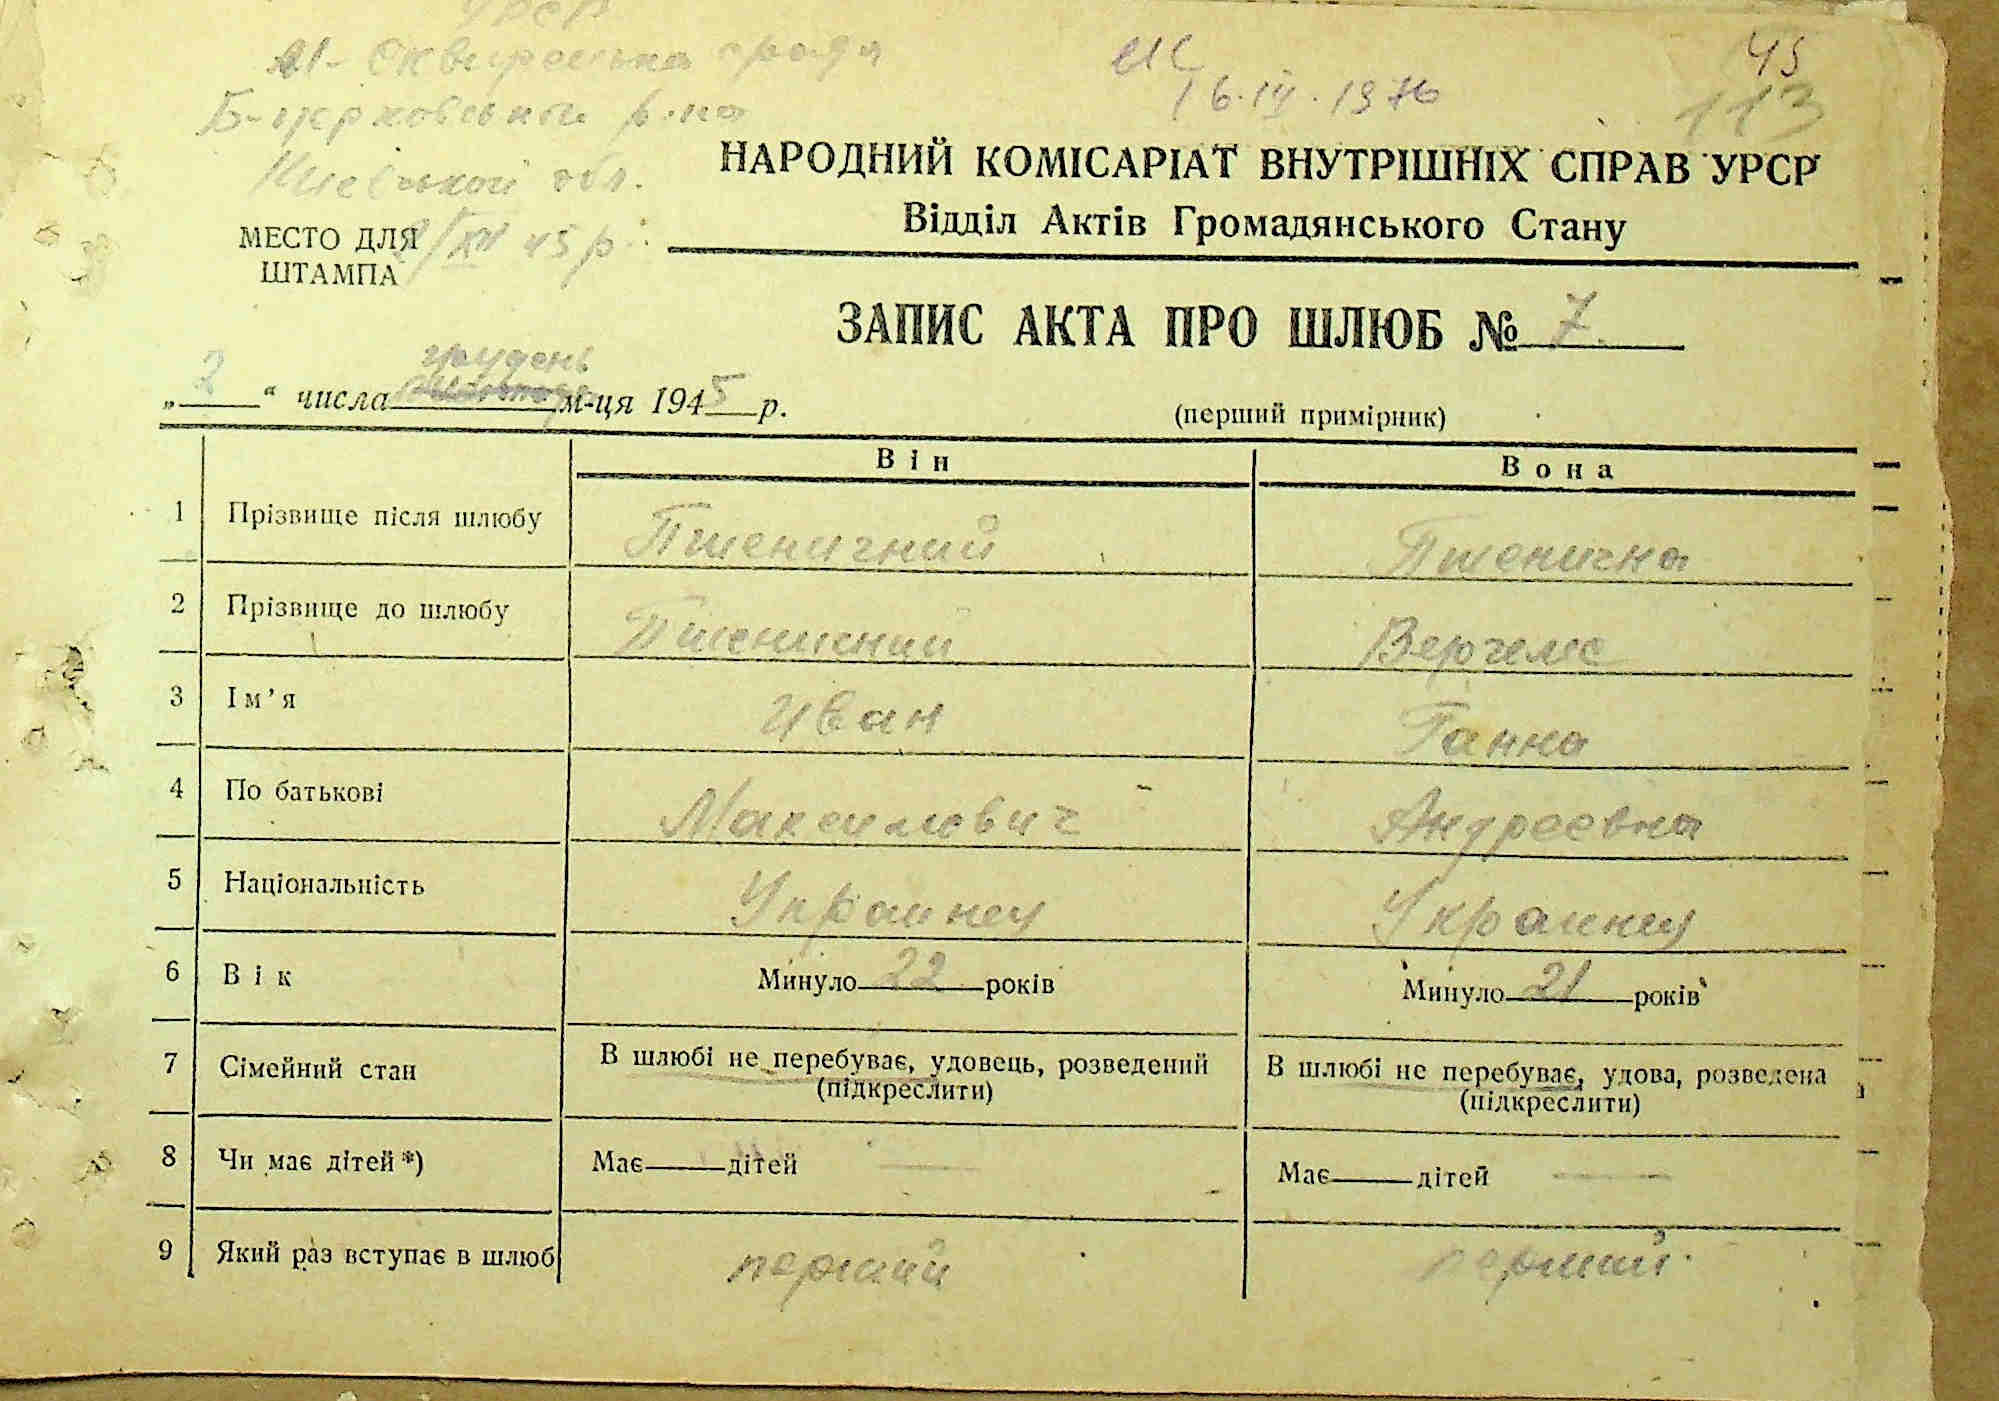 УРСР
Б-церковський р-на
Київської обл.
2/XII 45 р.
ИС
16.IV.1976
45
113
НАРОДНИЙ КОМІСАРІАТ ВНУТРІШНІХ СПРАВ УРСР
Відділ Актів Громадянського Стану
МЕСТО ДЛЯ
ШТАМПА
ЗАПИС АКТА ПРО ШЛЮБ № 7.
грудень
„ 2 “ числа м-ця 1945 р.
(перший примірник)
Він Вона
1 Прізвище після шлюбу Пшеничний Пшенична
2 Прізвище до шлюбу Пшеничний Вергелес
3 Ім’я Иван Ганна
4 По батькові Максимович Андреевна
5 Національність Украинец Украинка
6 Вік Минуло 22 років Минуло 21 років
7 Сімейний стан В шлюбі не перебуває, удовець, розведений В шлюбі не перебуває, удова, розведена
(підкреслити) (підкреслити)
8 Чи має дітей *) Має — дітей — Має — дітей —
9 Який раз вступає в шлюб перший перший